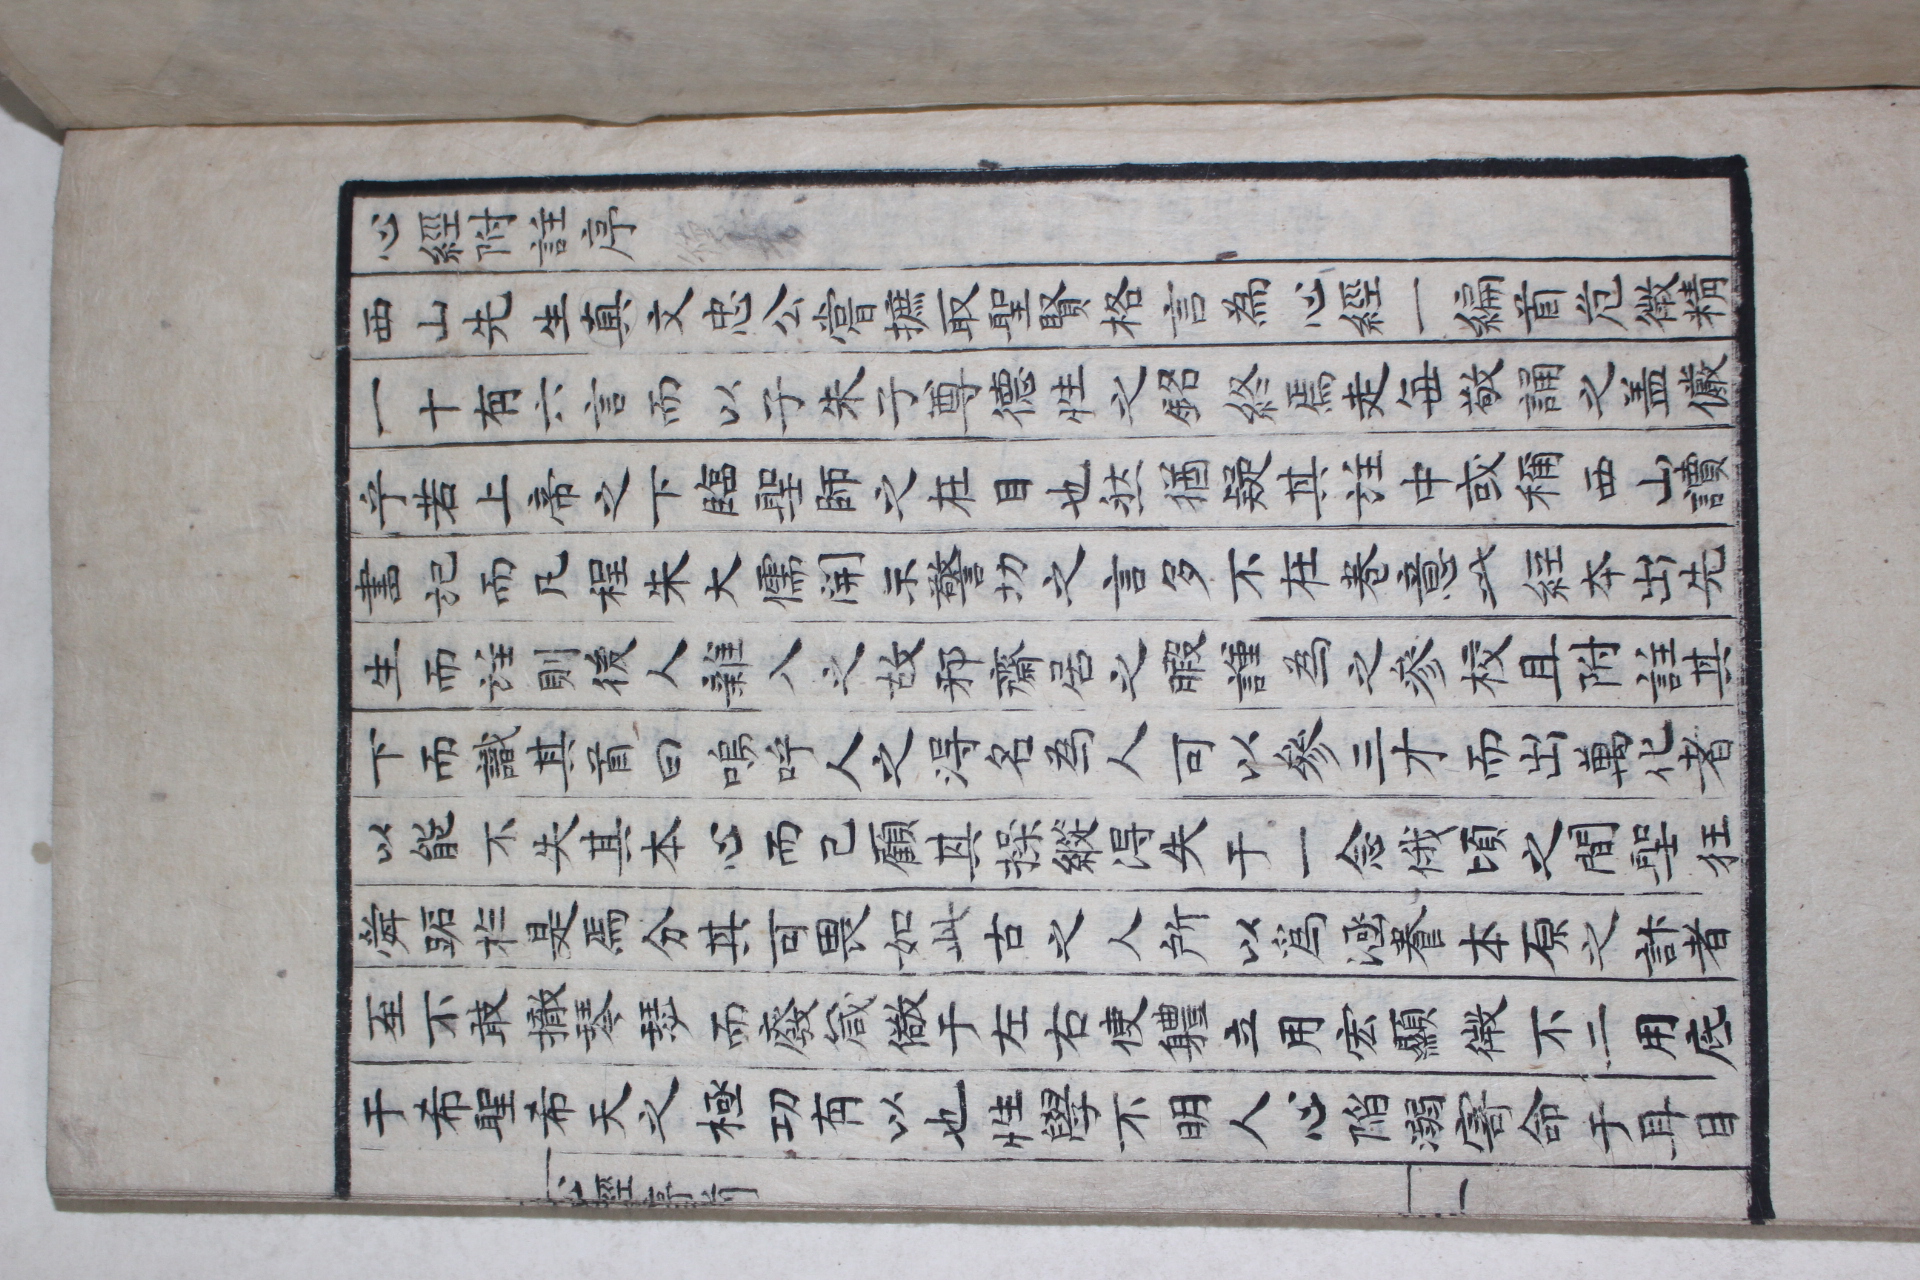 心經附註序
西山先生真文忠公嘗摭取聖賢格言為心經一編首危微精
一十有六言而以子朱子尊德性之銘終焉走每敬誦之盖儼
乎若上帝之下臨聖師之在目也然猶疑其註中或稱西山讀
書記而凡程朱大儒開示警切之言多不在卷意此經本出先
生而註則後人雜入之故邪齋居之暇謹為之參校且附註其
下而識其首曰嗚呼人之得名為人可以參三才而出萬化者
以能不失其本心而已顧其操縱得失于一念俄頃之間聖狂
舜跖於是焉分其可畏如此古之人所以為涵養本原之計者
至不敢撤琴瑟而廢箴儆于左右使軆立用宏顯微不二用底
于希聖希天之極功有以也性學不明人心陷溺寄命于耳目
心經
一